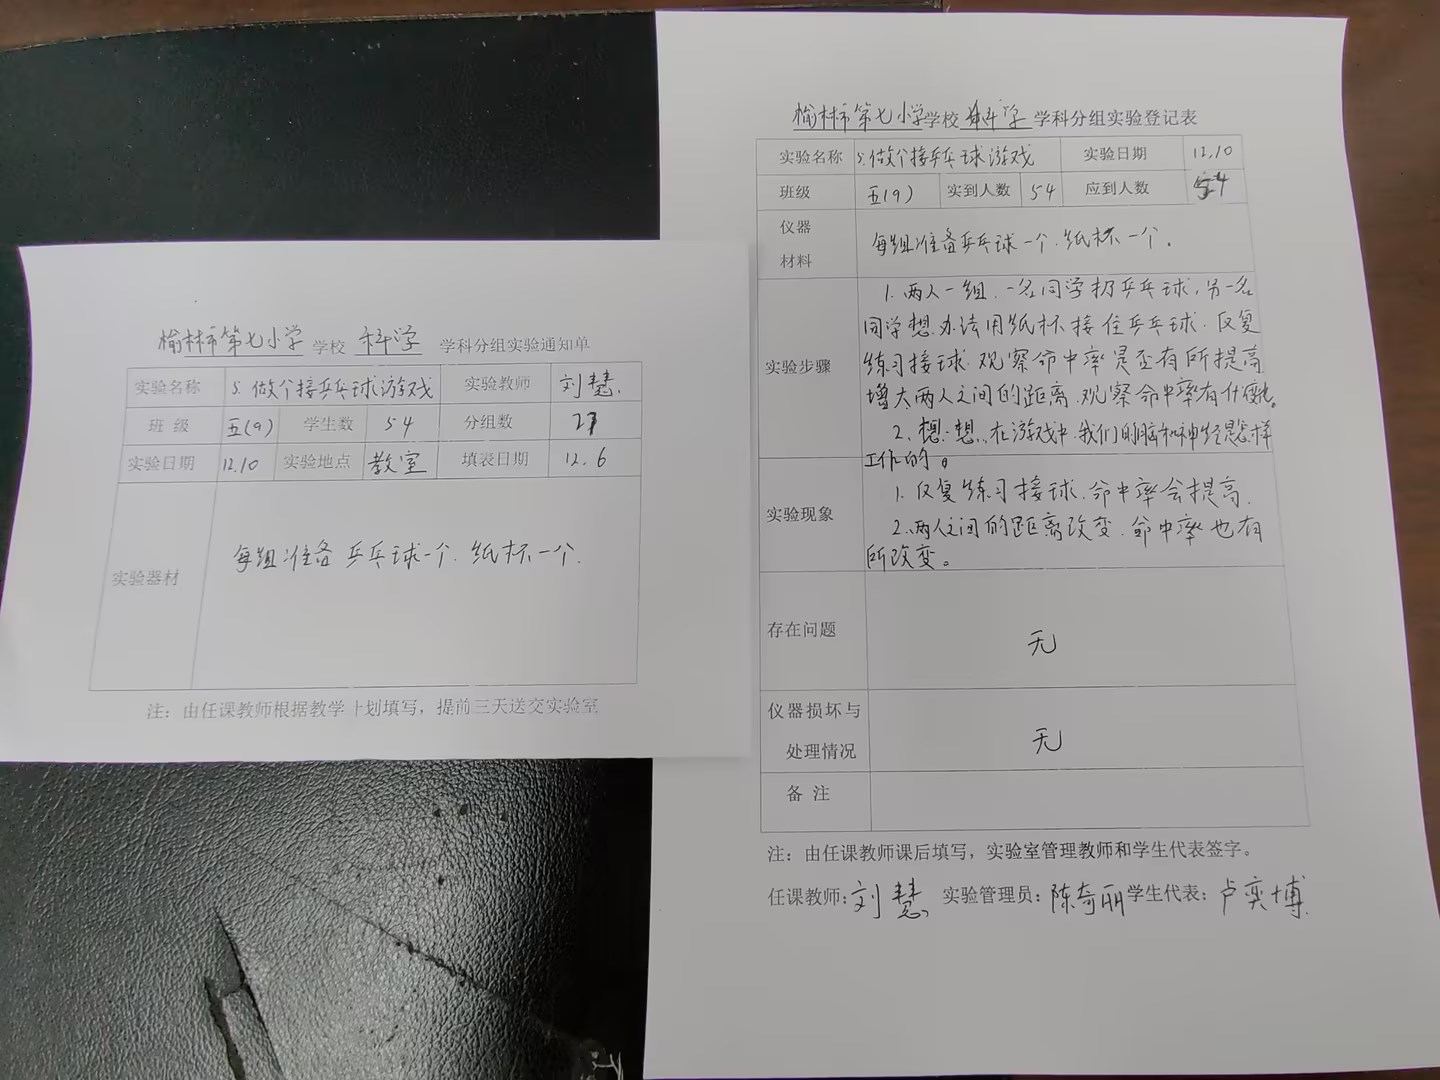 榆林市第七小学学校 科学 学科分组实验通知单
实验名称 5.做个接乒乓球游戏 实验教师 刘慧
班 级 五(9) 学生数 54 分组数 27
实验日期 12.10 实验地点 教室 填表日期 12.6
实验器材 每组准备乒乓球一个.纸杯一个.
注：由任课教师根据教学计划填写，提前三天送交实验室
榆林市第七小学学校 科学 学科分组实验登记表
实验名称 5.做个接乒乓球游戏 实验日期 12.10
班级 五(9) 实到人数 54 应到人数 54
仪器
材料
每组准备乒乓球一个.纸杯一个。
实验步骤
1.两人一组.一名同学扔乒乓球,另一名
同学想办法用纸杯接住乒乓球.反复
练习接球.观察命中率是否有所提高.
增大两人之间的距离.观察命中率有什变化。
2.想一想,在游戏中.我们的脑和神经是怎样
工作的。
实验现象
1.反复练习接球.命中率会提高.
2.两人之间的距离改变.命中率也有
所改变。
存在问题 无
仪器损坏与
处理情况
无
备 注
注：由任课教师课后填写，实验室管理教师和学生代表签字。
任课教师:刘慧 实验管理员:陈奇丽 学生代表:卢奕博